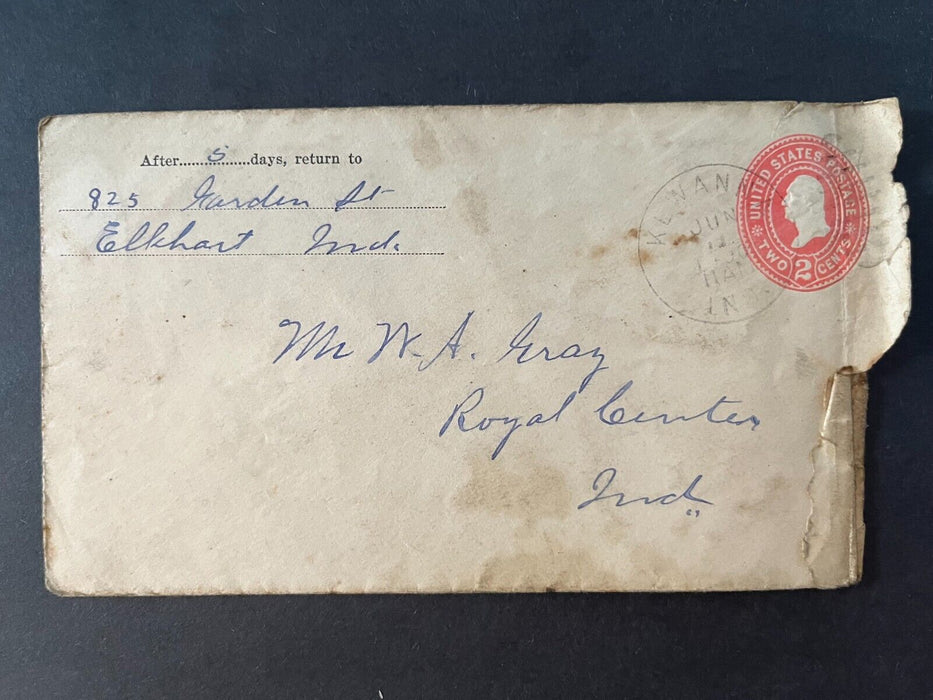 After......5......days, return to
825 Garden St
Elkhart Ind.
UNITED STATES POSTAGE
TWO 2 CENTS
KEWAN
JUN
IN
Mr W. A. Gray
Royal Center
Ind.